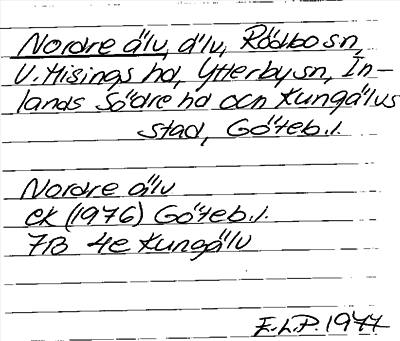 Nordre älv, älv, Rödbo sn,
V. Hisings hd, Ytterby sn, In-
lands Södre hd och Kungälvs
stad, Göteb. l.
Nordre älv
ek (1976) Göteb. l.
7B 4e Kungälv
F.L.P. 1977